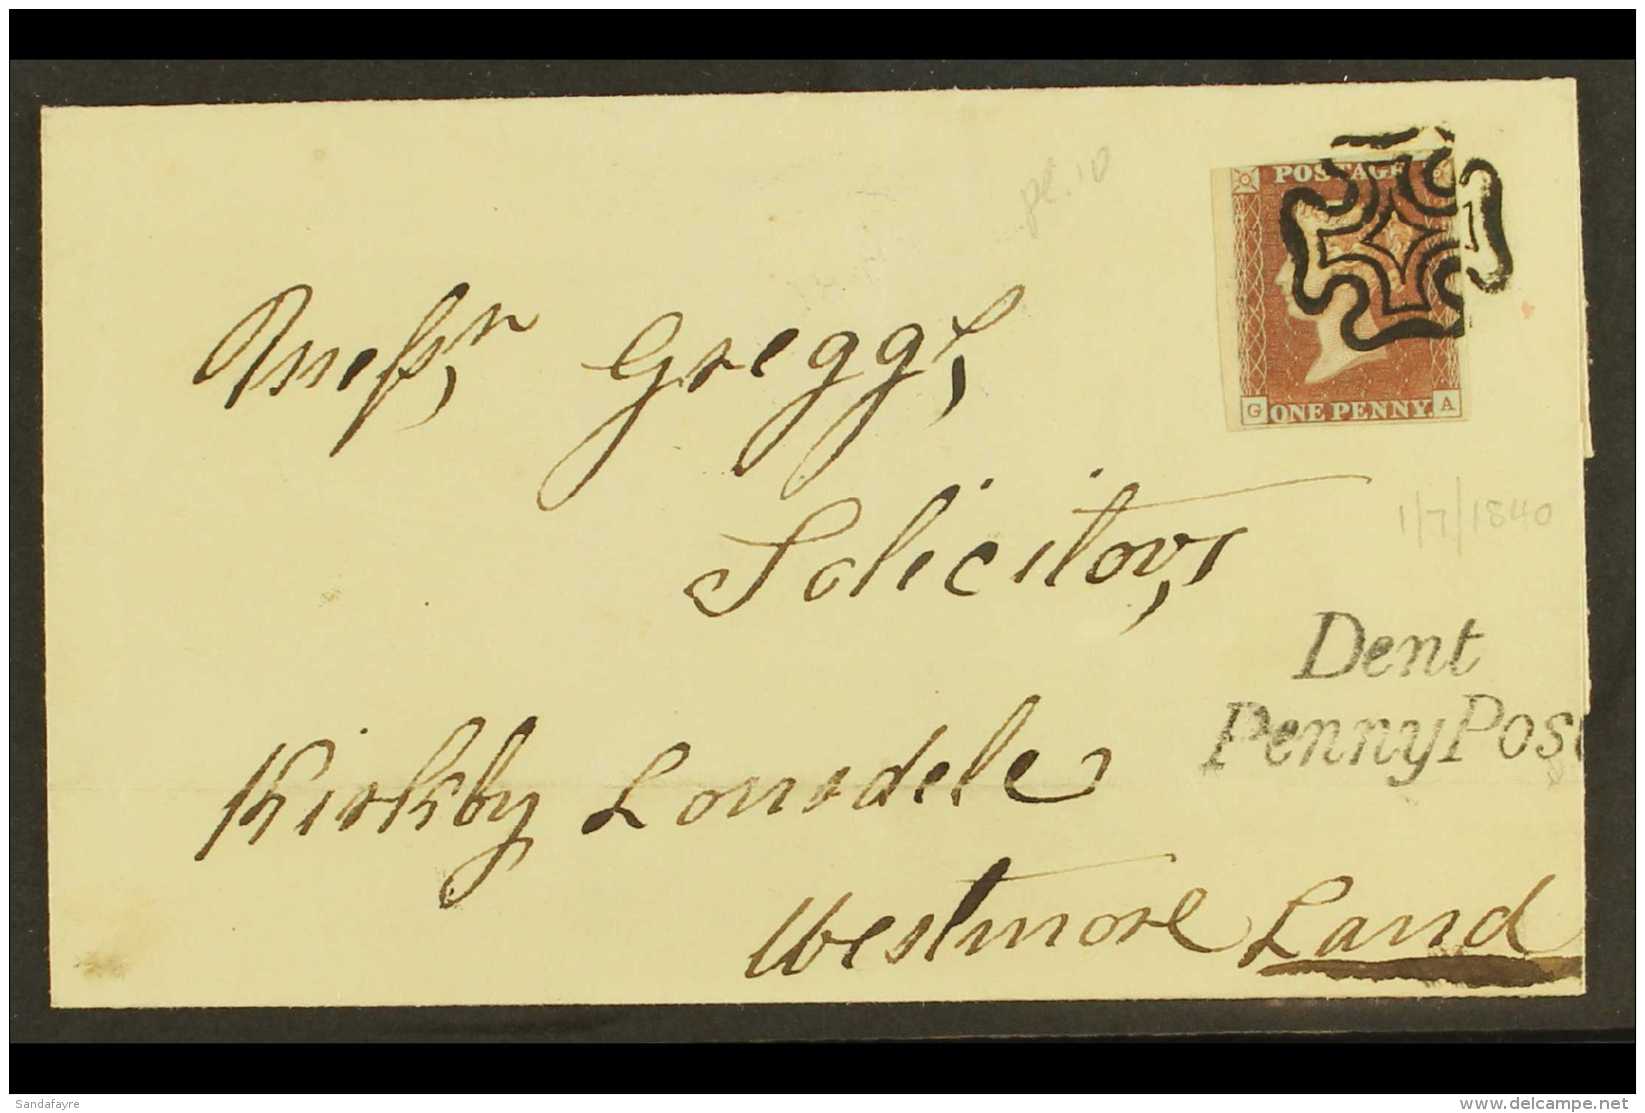 pl. 10
POSTAGE
1
G ONE PENNY. A
Messrs Greggs,
Solicitors,
1/7/1840
Dent
Penny Post
Kirkby Lonsdale
Westmore Land
Sandafayre
delcampe.net